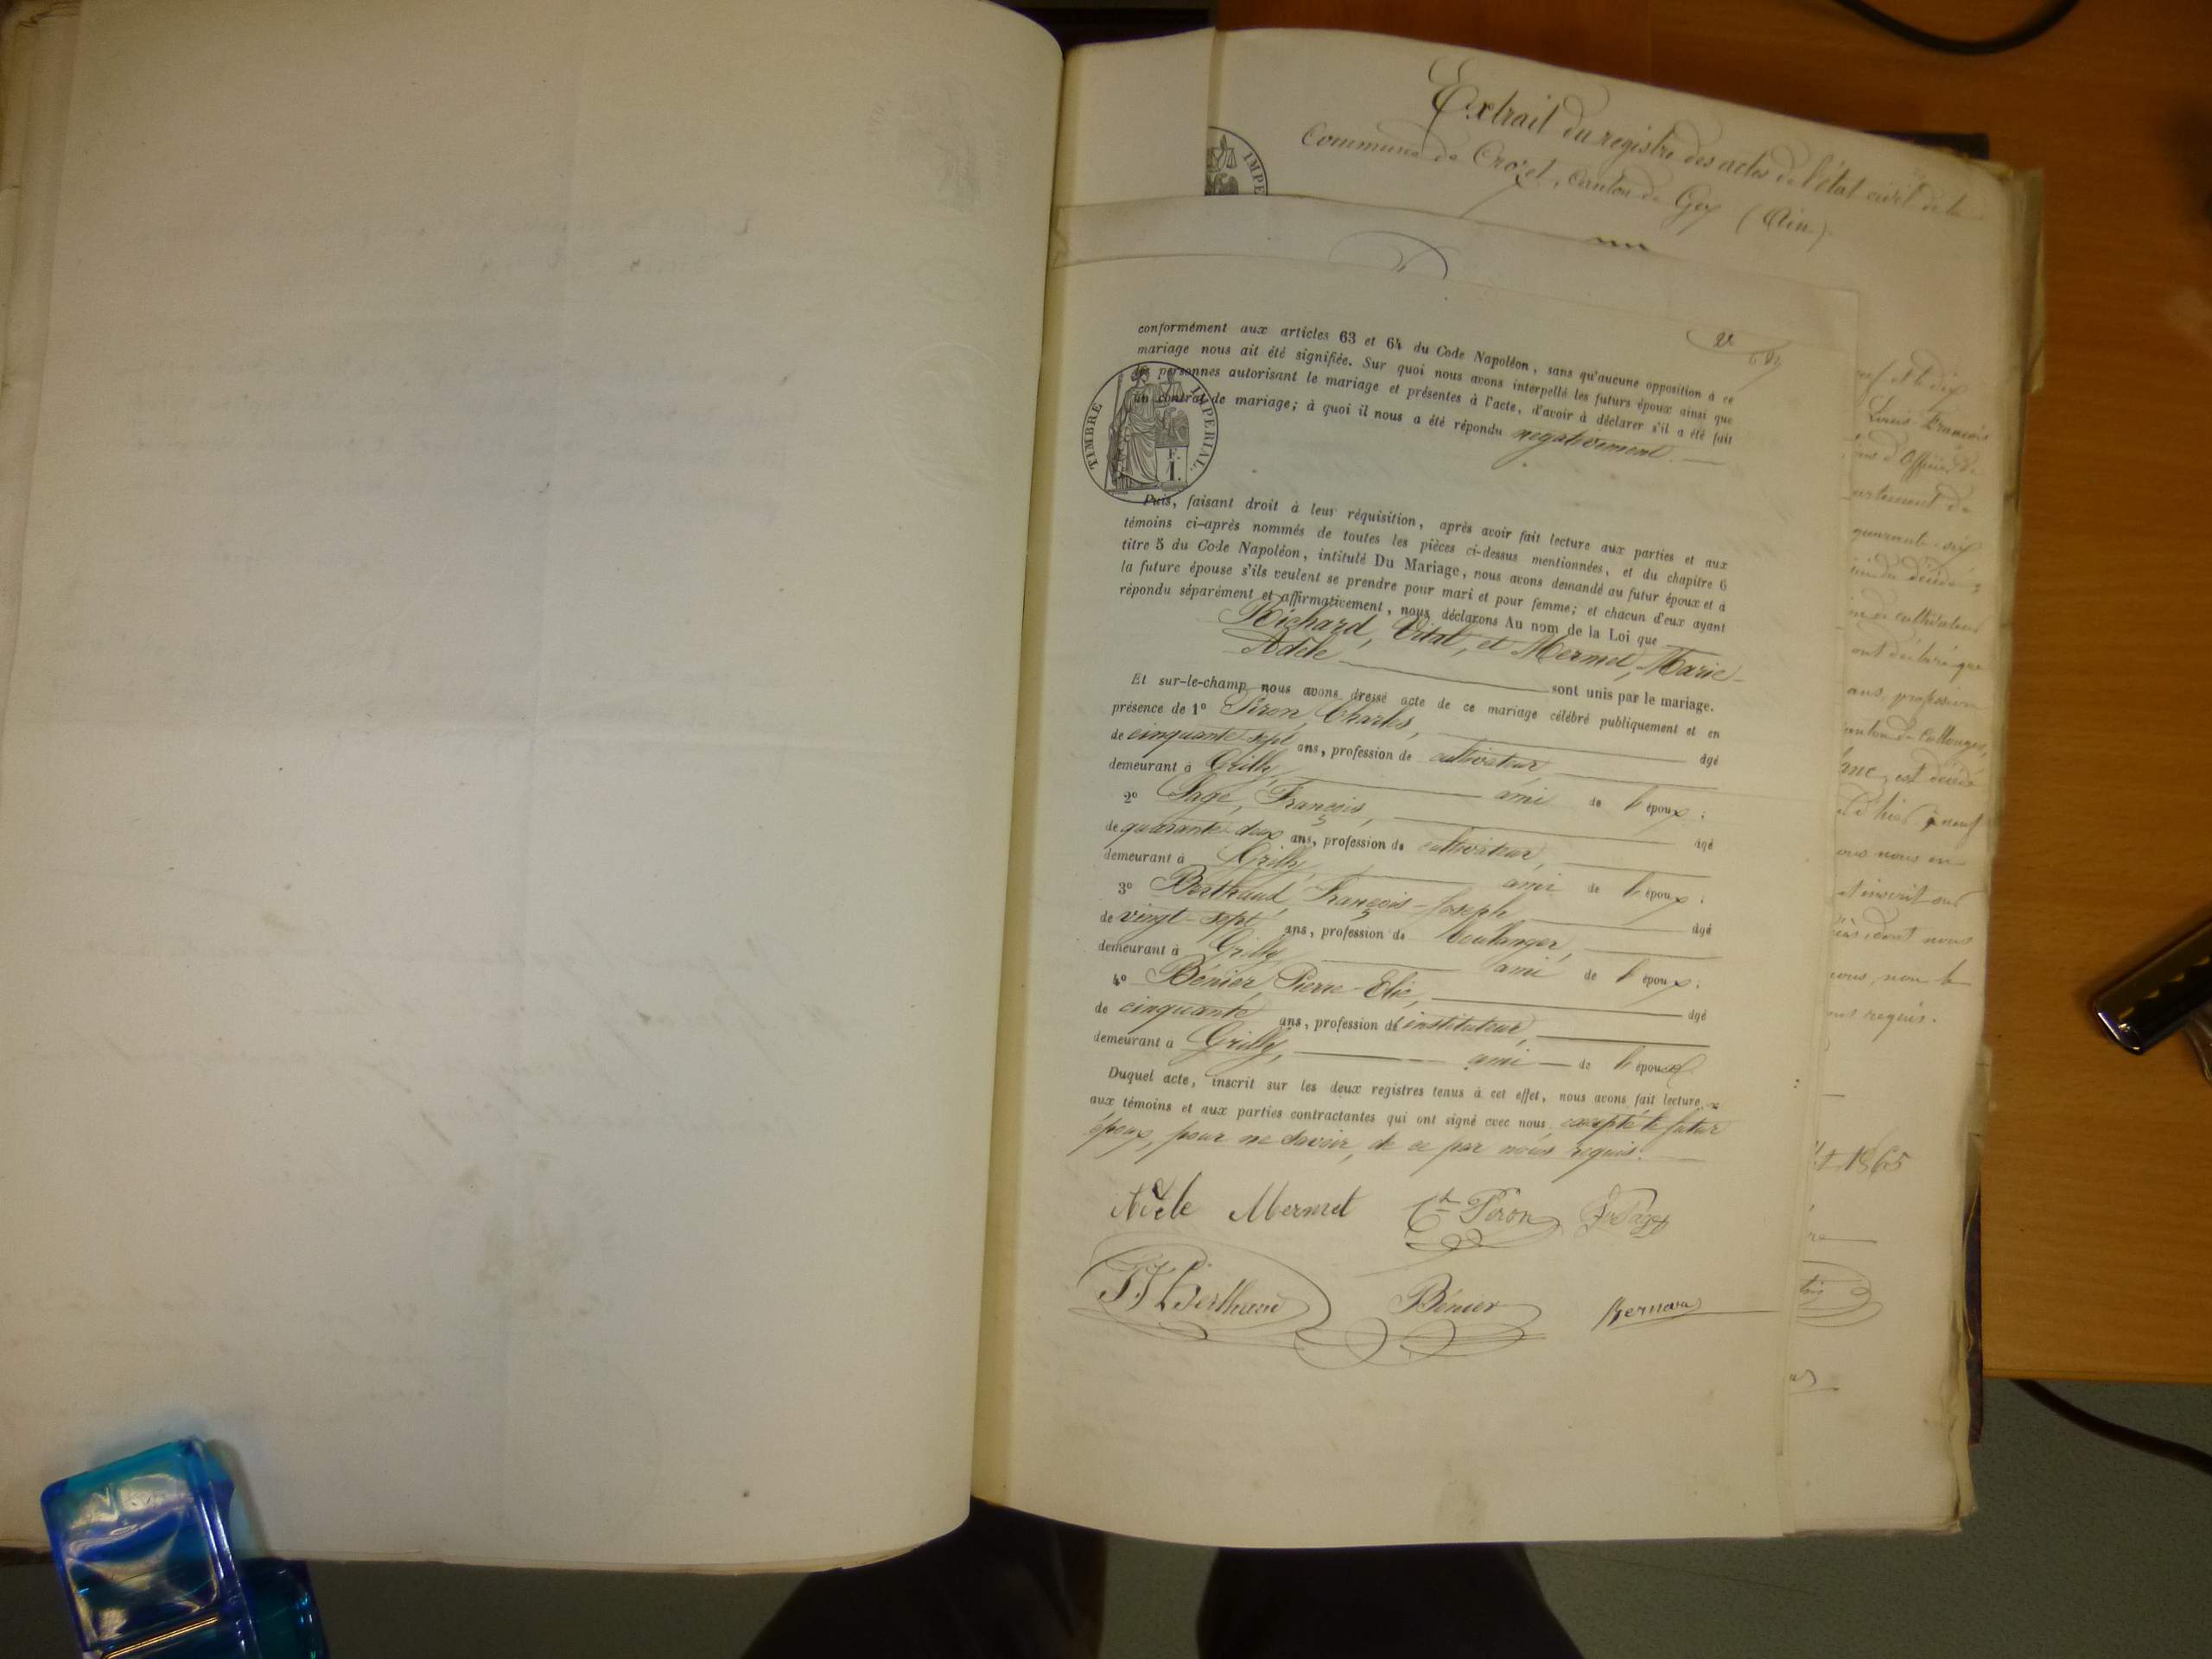 Extrait du registre des actes de l'état civil de la
Commune de Crozet, Canton de Gex (Ain)
conformément aux articles 63 et 64 du Code Napoléon, sans qu'aucune opposition à ce
mariage nous ait été signifiée. Sur quoi nous avons interpellé les futurs époux ainsi que
les personnes autorisant le mariage et présentes à l'acte, d'avoir à déclarer s'il a été fait
un contrat de mariage; à quoi il nous a été répondu négativement.
TIMBRE IMPERIAL
F. 1.
Puis, faisant droit à leur réquisition, après avoir fait lecture aux parties et aux
témoins ci-après nommés de toutes les pièces ci-dessus mentionnées, et du chapitre 6
titre 5 du Code Napoléon, intitulé Du Mariage, nous avons demandé au futur époux et à
la future épouse s'ils veulent se prendre pour mari et pour femme; et chacun d'eux ayant
répondu séparément et affirmativement, nous déclarons Au nom de la Loi que
Richard, Vital, et Mermet, Marie-
Adèle sont unis par le mariage.
Et sur-le-champ nous avons dressé acte de ce mariage célébré publiquement et en
présence de 1° Piron, Charles, âgé
de cinquante-sept ans, profession de cultivateur
demeurant à Grilly, ami de l'époux;
2° Page, François, âgé
de quarante-deux ans, profession de cultivateur,
demeurant à Grilly, ami de l'époux;
3° Berthaud, François-Joseph, âgé
de vingt-sept ans, profession de boulanger,
demeurant à Grilly ami de l'époux;
4° Bénier, Pierre-Elie, âgé
de cinquante ans, profession d'instituteur,
demeurant à Grilly, ami de l'époux
Duquel acte, inscrit sur les deux registres tenus à cet effet, nous avons fait lecture
aux témoins et aux parties contractantes qui ont signé avec nous, excepté le futur
époux, pour ne savoir, de ce par nous requis.
Adèle Mermet Ch Piron Fs Page
FJ Berthaud Bénier
Louis François
quarante-six
cultivateur
ont déclaré que
ans, profession
canton de Collonges,
est décédé
et inscrit sur
dont nous
requis.
1865